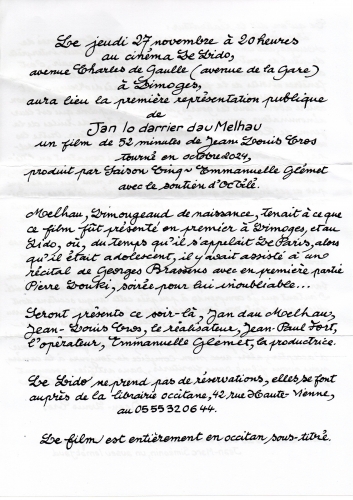 Le jeudi 27 novembre à 20 heures
au cinéma Le Lido,
avenue Charles de Gaulle (avenue de la Gare)
à Limoges,
aura lieu la première représentation publique
de
Jan lo darrier dau Melhau
un film de 52 minutes de Jean Louis Cros
tourné en octobre 2024,
produit par Saison Cinq ~ Emmanuelle Glémet
avec le soutien d'Oc Télé.
Melhau, Limougeaud de naissance, tenait à ce que
ce film fût présenté en premier à Limoges, et au
Lido, où, du temps qu'il s'appelait Le Paris, alors
qu'il était adolescent, il y avait assisté à un
récital de Georges Brassens avec en première partie
Pierre Louki, soirée pour lui inoubliable...
Seront présents ce soir-là, Jan dau Melhau,
Jean-Louis Cros, le réalisateur, Jean-Paul Fort,
l'opérateur, Emmanuelle Glémet, la productrice.
Le Lido ne prend pas de réservations, elles se font
auprès de la librairie occitane, 42 rue Haute-Vienne,
au 05 55 32 06 44.
Le film est entièrement en occitan sous-titré.